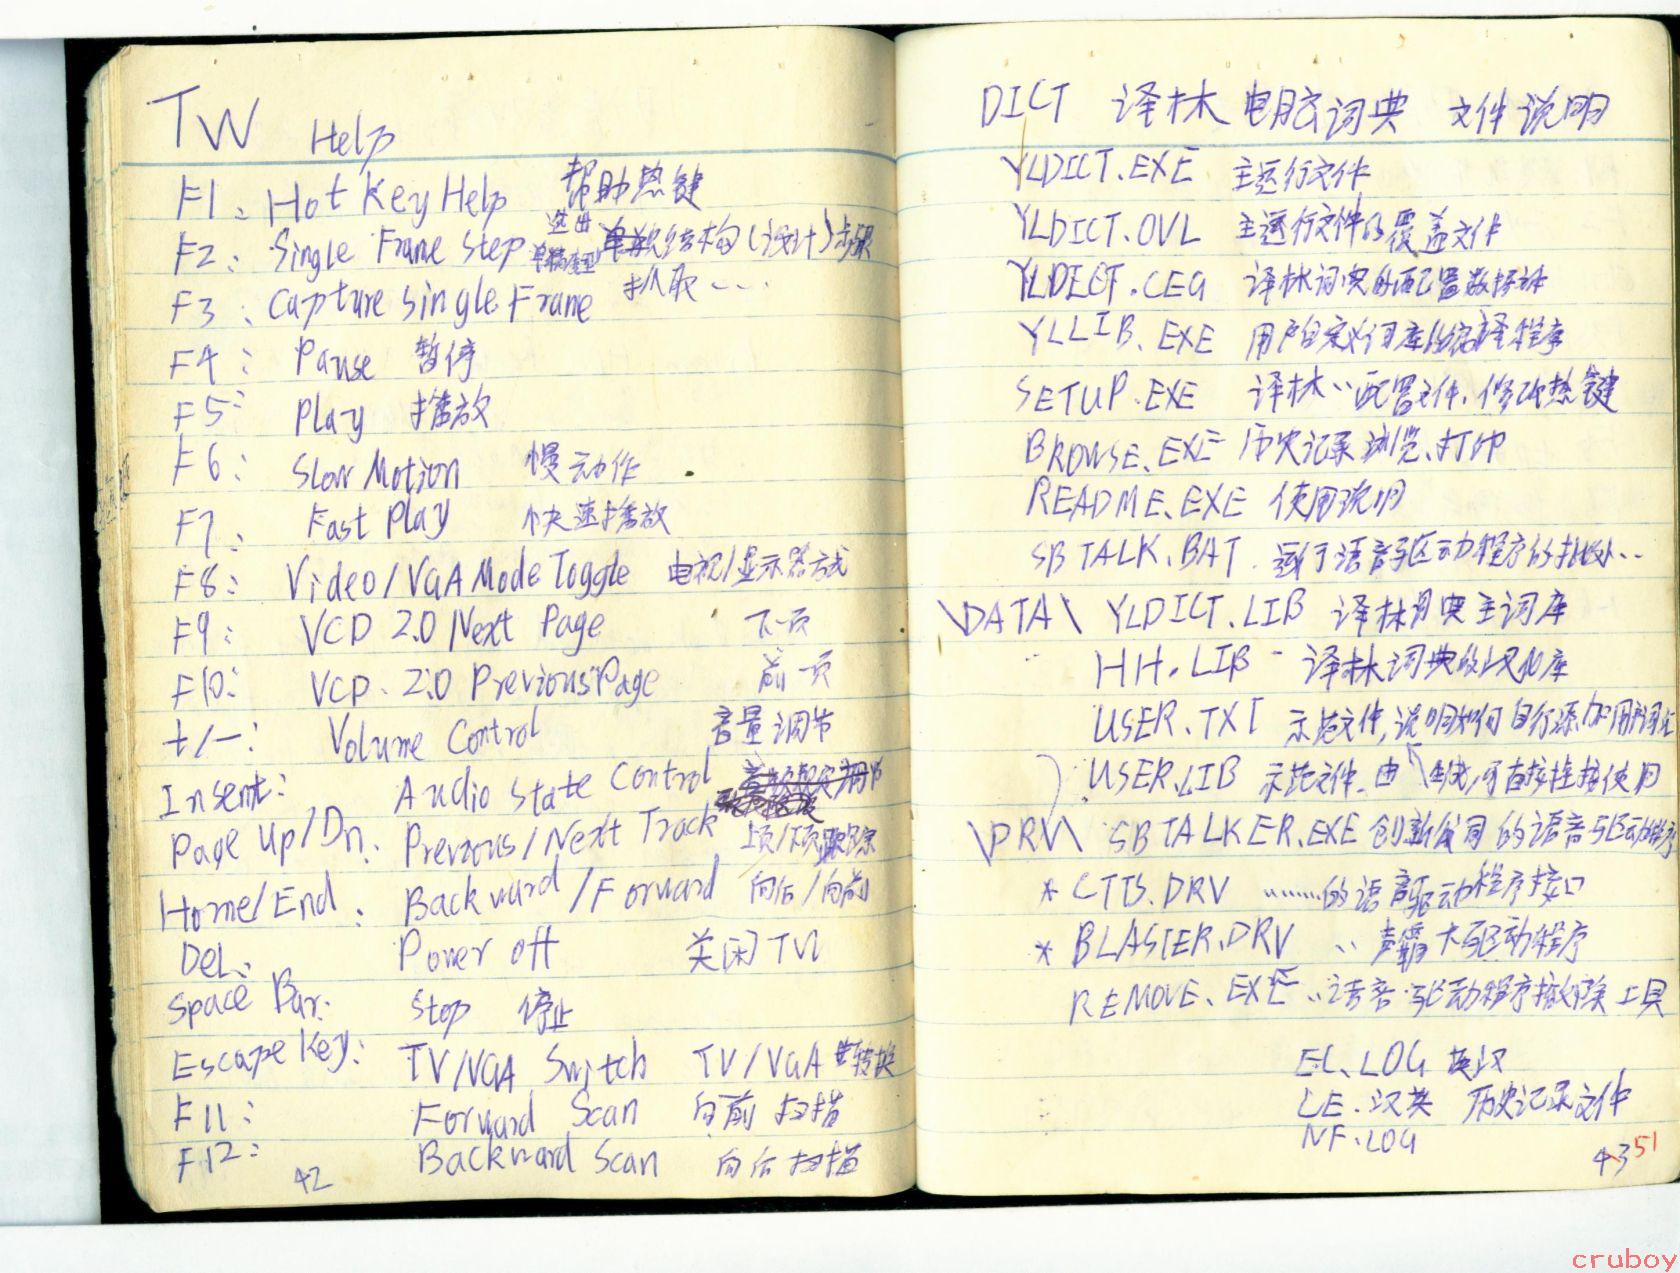 TW Help
F1: Hot Key Help 帮助热键
F2: Single Frame Step 单 结构(设计)步骤
F3: Capture Single Frame 抓取……
F4: Pause 暂停
F5: Play 播放
F6: Slow Motion 慢动作
F7: Fast Play 快速播放
F8: Video/VGA Mode Toggle 电视/显示器方式
F9: VCD 2.0 Next Page 下一页
F10: VCD 2.0 Previous Page 前一页
+/-: Volume Control 音量调节
Insent: Audio State Control
Page Up/Dn: Previous/Next Track
Home/End: Backward/Forward 向后/向前
DEL: Power off 关闭
Space Bar: Stop 停止
Escape Key: TV/VGA Switch TV/VGA 转换
F11: Forward Scan 向前扫描
F12: Backward Scan 向后扫描
42
DICT 译林电脑词典 文件说明
YLDICT.EXE 主运行文件
YLDICT.OVL 主运行文件的覆盖文件
YLDICT.CEG 译林词典的配置数据
YLLIB.EXE 用户自定义词库的编译程序
SETUP.EXE 译林〃配置文件、修改热键
BROWSE.EXE 历史记录浏览、打印
README.EXE 使用说明
SBTALK.BAT 语音驱动程序的批处〃
\DATA\ YLDICT.LIB 译林词典主词库
HH.LIB 译林词典的汉化库
USER.TXT 示范文件,说明如何自行添加用户词汇
USER.LIB 示范文件.由↑生成,可直接挂接使用
\DRV\ SBTALKER.EXE 创新公司的语音驱动程序
* CTTS.DRV ……的语音驱动程序接口
* BLASTER.DRV 〃 声霸卡驱动程序
REMOVE.EXE 〃语音驱动程序撤除工具
EC.LOG 英汉
CE.汉英 历史记录文件
NF.LOG
43 51
cruboy